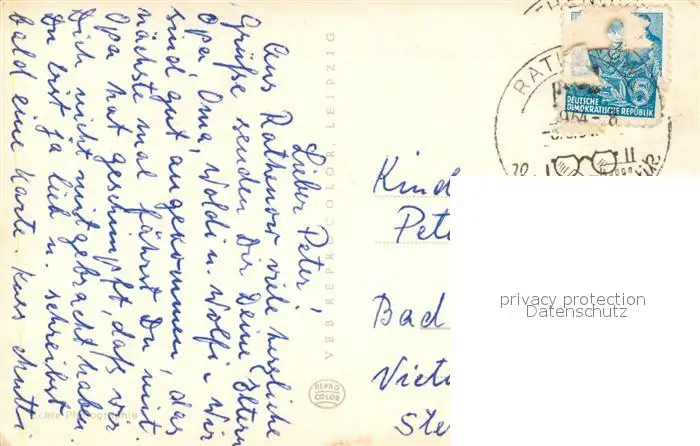 Lieber Peter!
Aus Rathenow viele herzliche
Grüße senden Dir Deine Eltern
Opa Oma, Woldi u. Wolfi. Wir
sind gut angekommen, das
nächste mal fährst Du mit.
Opa hat geschimpft, daß wir
Dich nicht mitgebracht haben.
Du bist ja lieb u. schreibst
bald eine Karte. Kuss Mutti
VEB REPROCOLOR, LEIPZIG
REPRO
COLOR
Echte Photographie
Kind
Pete
Bad
Vict
Ste
RAT
DEUTSCHE
DEMOKRATISCHE REPUBLIK
5
privacy protection
Datenschutz